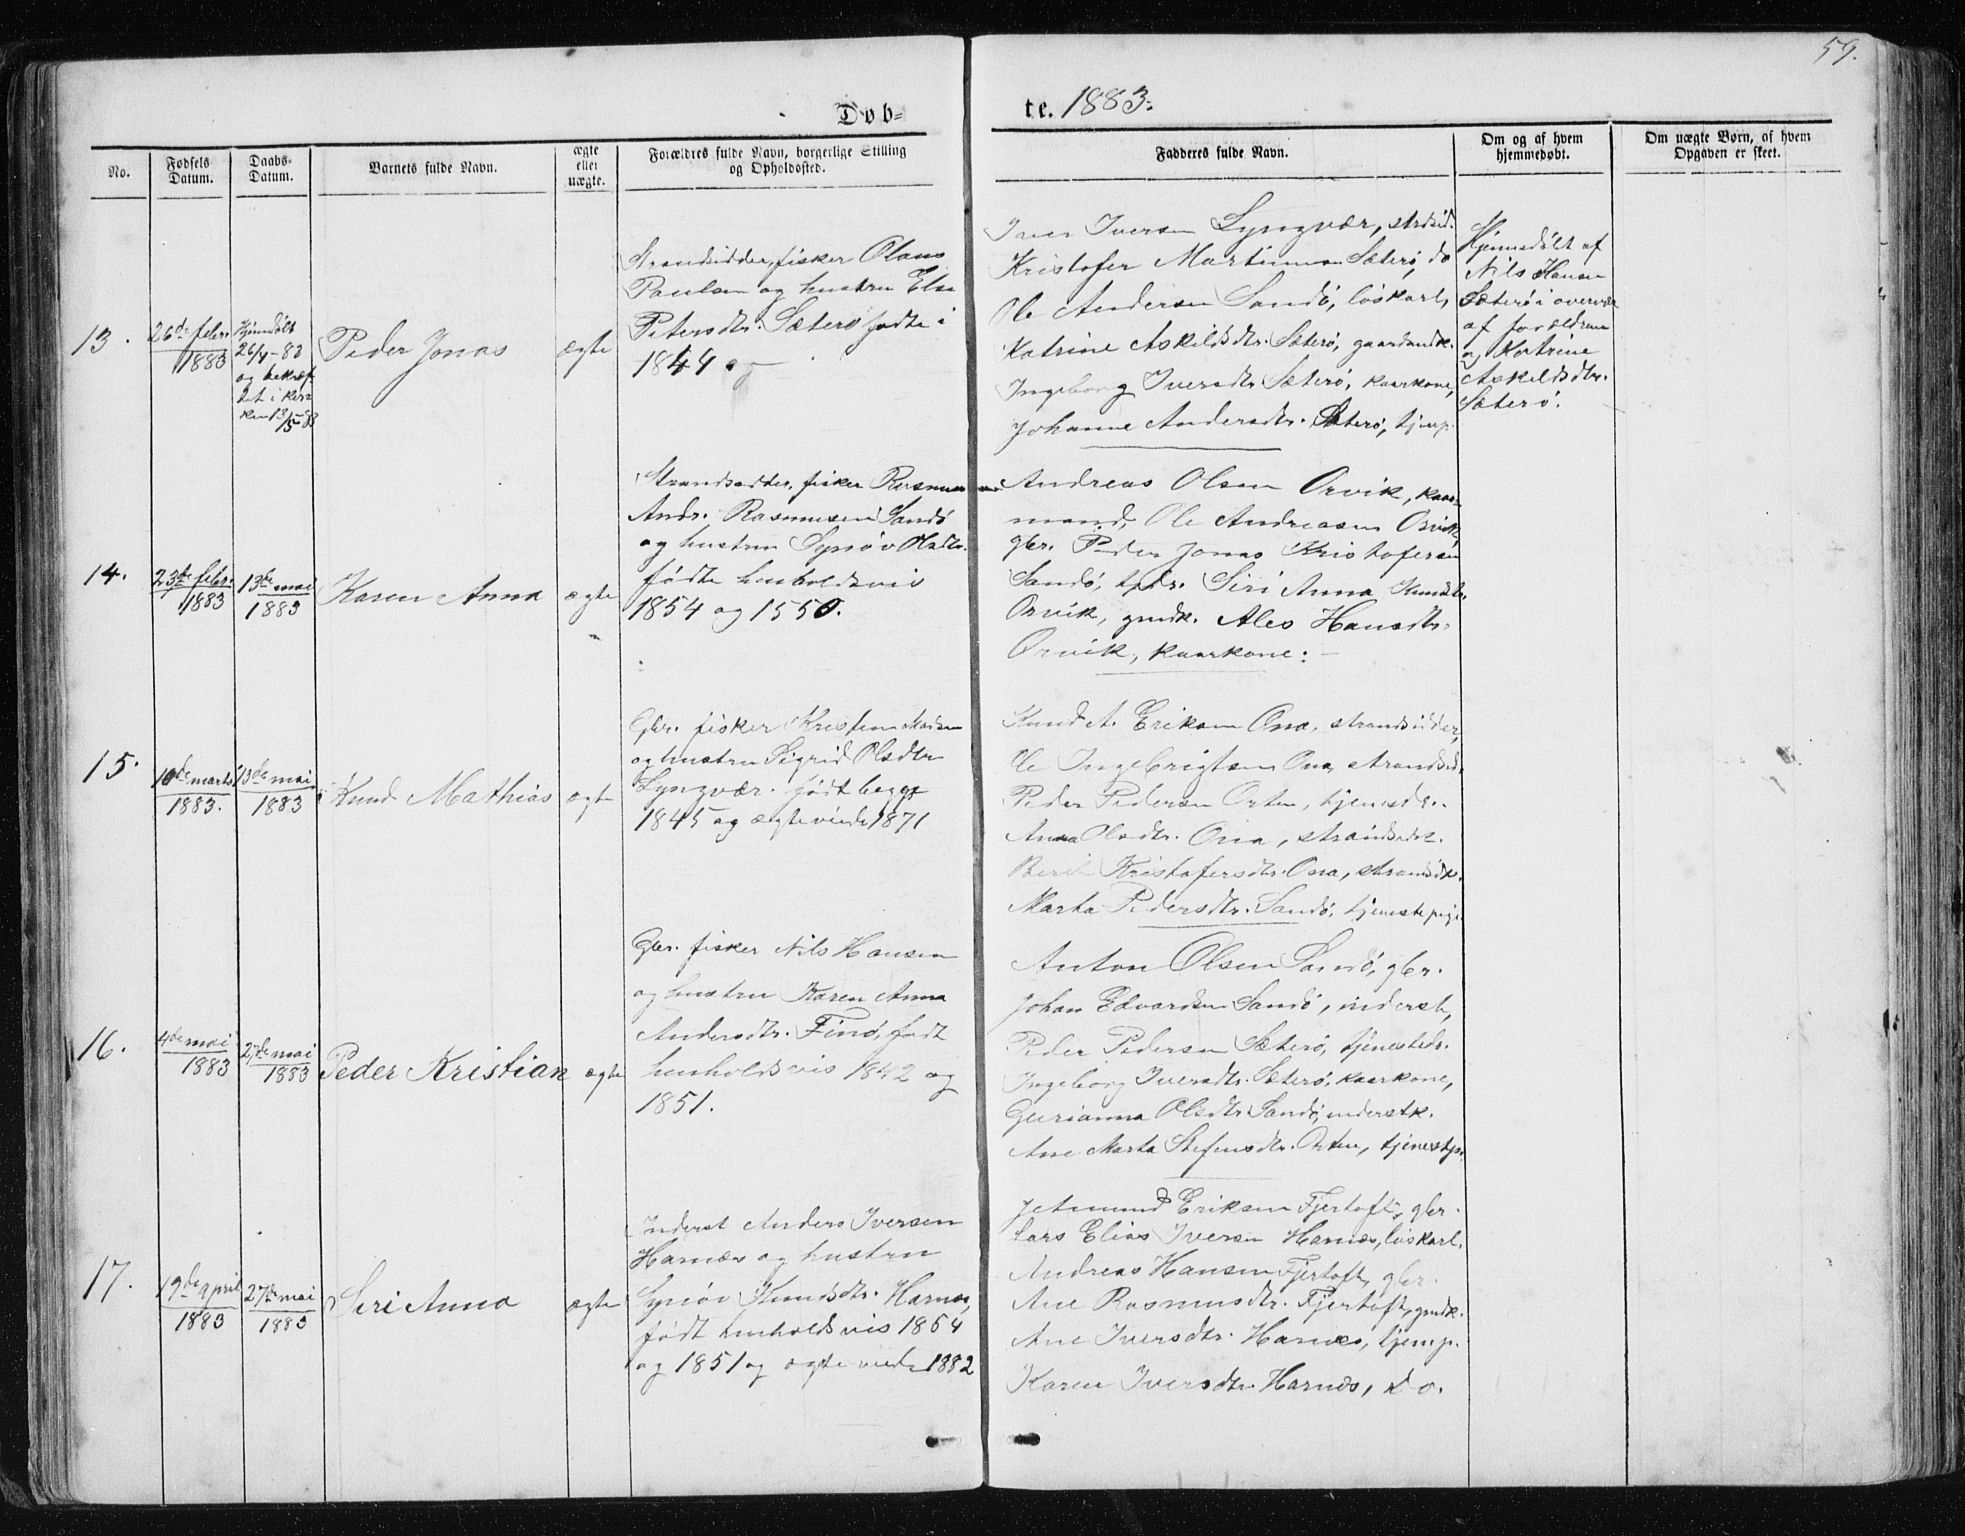 59.
Døb=
te. 1883.
No.
Fødsels
Datum.
Daabs-
Datum.
Barnets fulde Navn.
ægte
eller
uægte.
Forældres fulde Navn, borgerlige Stilling
og Opholdssted.
Fadderes fulde Navn.
Om og af hvem
hjemmedøbt.
Om uægte Børn, af hvem
Opgaven er skeet.
13.
26de febr.
1883
Hjemdøbt
26/4-83
og bekræf-
tet i kir-
ken 13/5-83
Peder Jonas
ægte
Strandsidder, fisker Olaus
Paulsen og hustru Else
Petersdtr. Sæterø fødte i
1844 og
Iver Iversen Lyngvær, strdsid.
Kristofer Martinussen Sæterø, do
Ole Andersen Sandø, løskarl,
Katrine Askildsdtr. Sæterø, gaardmdk.
Ingeborg Iversdtr. Sæterø, kaarkone,
Johanne Andersdtr. Sæterø, tjenp.
Hjemmedøbt af
Nils Hansen
Sæterø i overvær
af forældrene
og Katrine
Askildsdtr.
Sæterø.
14.
23de febr.
1883
13de mai
1883
Karen Anna
ægte
Strandsidder, fisker Rasmus
Andr. Rasmusen Sandø
og hustru Synøv Olsdtr.
fødte henholdsvis
1854 og 1550.
Andreas Olsen Orvik, kaar-
mand, Ole Andreasen Orvik
gbr. Peder Jonas Kristofersen
Sandø, tjdr. Siri Anna Knudsdtr.
Orvik, gmdk. Ales Hansdtr.
Orvik, kaarkone:
15.
10de marts
1883.
13de mai
1883
Knud Mathias
ægte
Gbr. fisker Kristen Madsen
og hustru Sigrid Olsdtr
Lyngvær. født begge
1845 og ægteviede 1871
Knud A. Eriksen Ona, strandsidder,
Ole Ingebrigtsen Ona, strandsid.
Peder Pedersen Orten, tjenestdr.
Anna Olsdtr. Ona, strandsidk.
Berit Kristofersdtr. Ona, strandsidk.
Marta Pedersdtr. Sandø, tjenestepige
16.
4de mai
1883
27de mai
1883
Peder Kristian
ægte
Gbr. fisker Nils Hansen
og hustru Karen Anna
Andersdtr. Finø, født
henholdsvis 1842 og
1851.
Anton Olsen Sandø, gbr.
Johan Edvardsen Sandø, inderst,
Peder Pedersen Sæterø, tjenestedr.
Ingeborg Iversdtr. Sæterø, kaarkone,
Gurianna Olsdtr. Sandø, inderstk.
Ane Marta Stefensdtr. Orten, tjenestp.
17.
19de april
1883
27de mai
1883
Siri Anna
ægte
Inderst Anders Iversen
Harnæs og hustru
Synøv Knudsdtr. Harnæs,
født henholdsvis 1854
og 1851 og ægteviede 1882
Jetmund Eriksen Fjertoft, gbr.
Lars Elias Iversen Harnæs, løskarl,
Andreas Hansen Fjertoft, gbr.
Ane Rasmusdtr. Fjertoft, gmdk.
Ane Iversdtr. Harnæs, tjenp.
Karen Iversdtr. Harnæs, do.